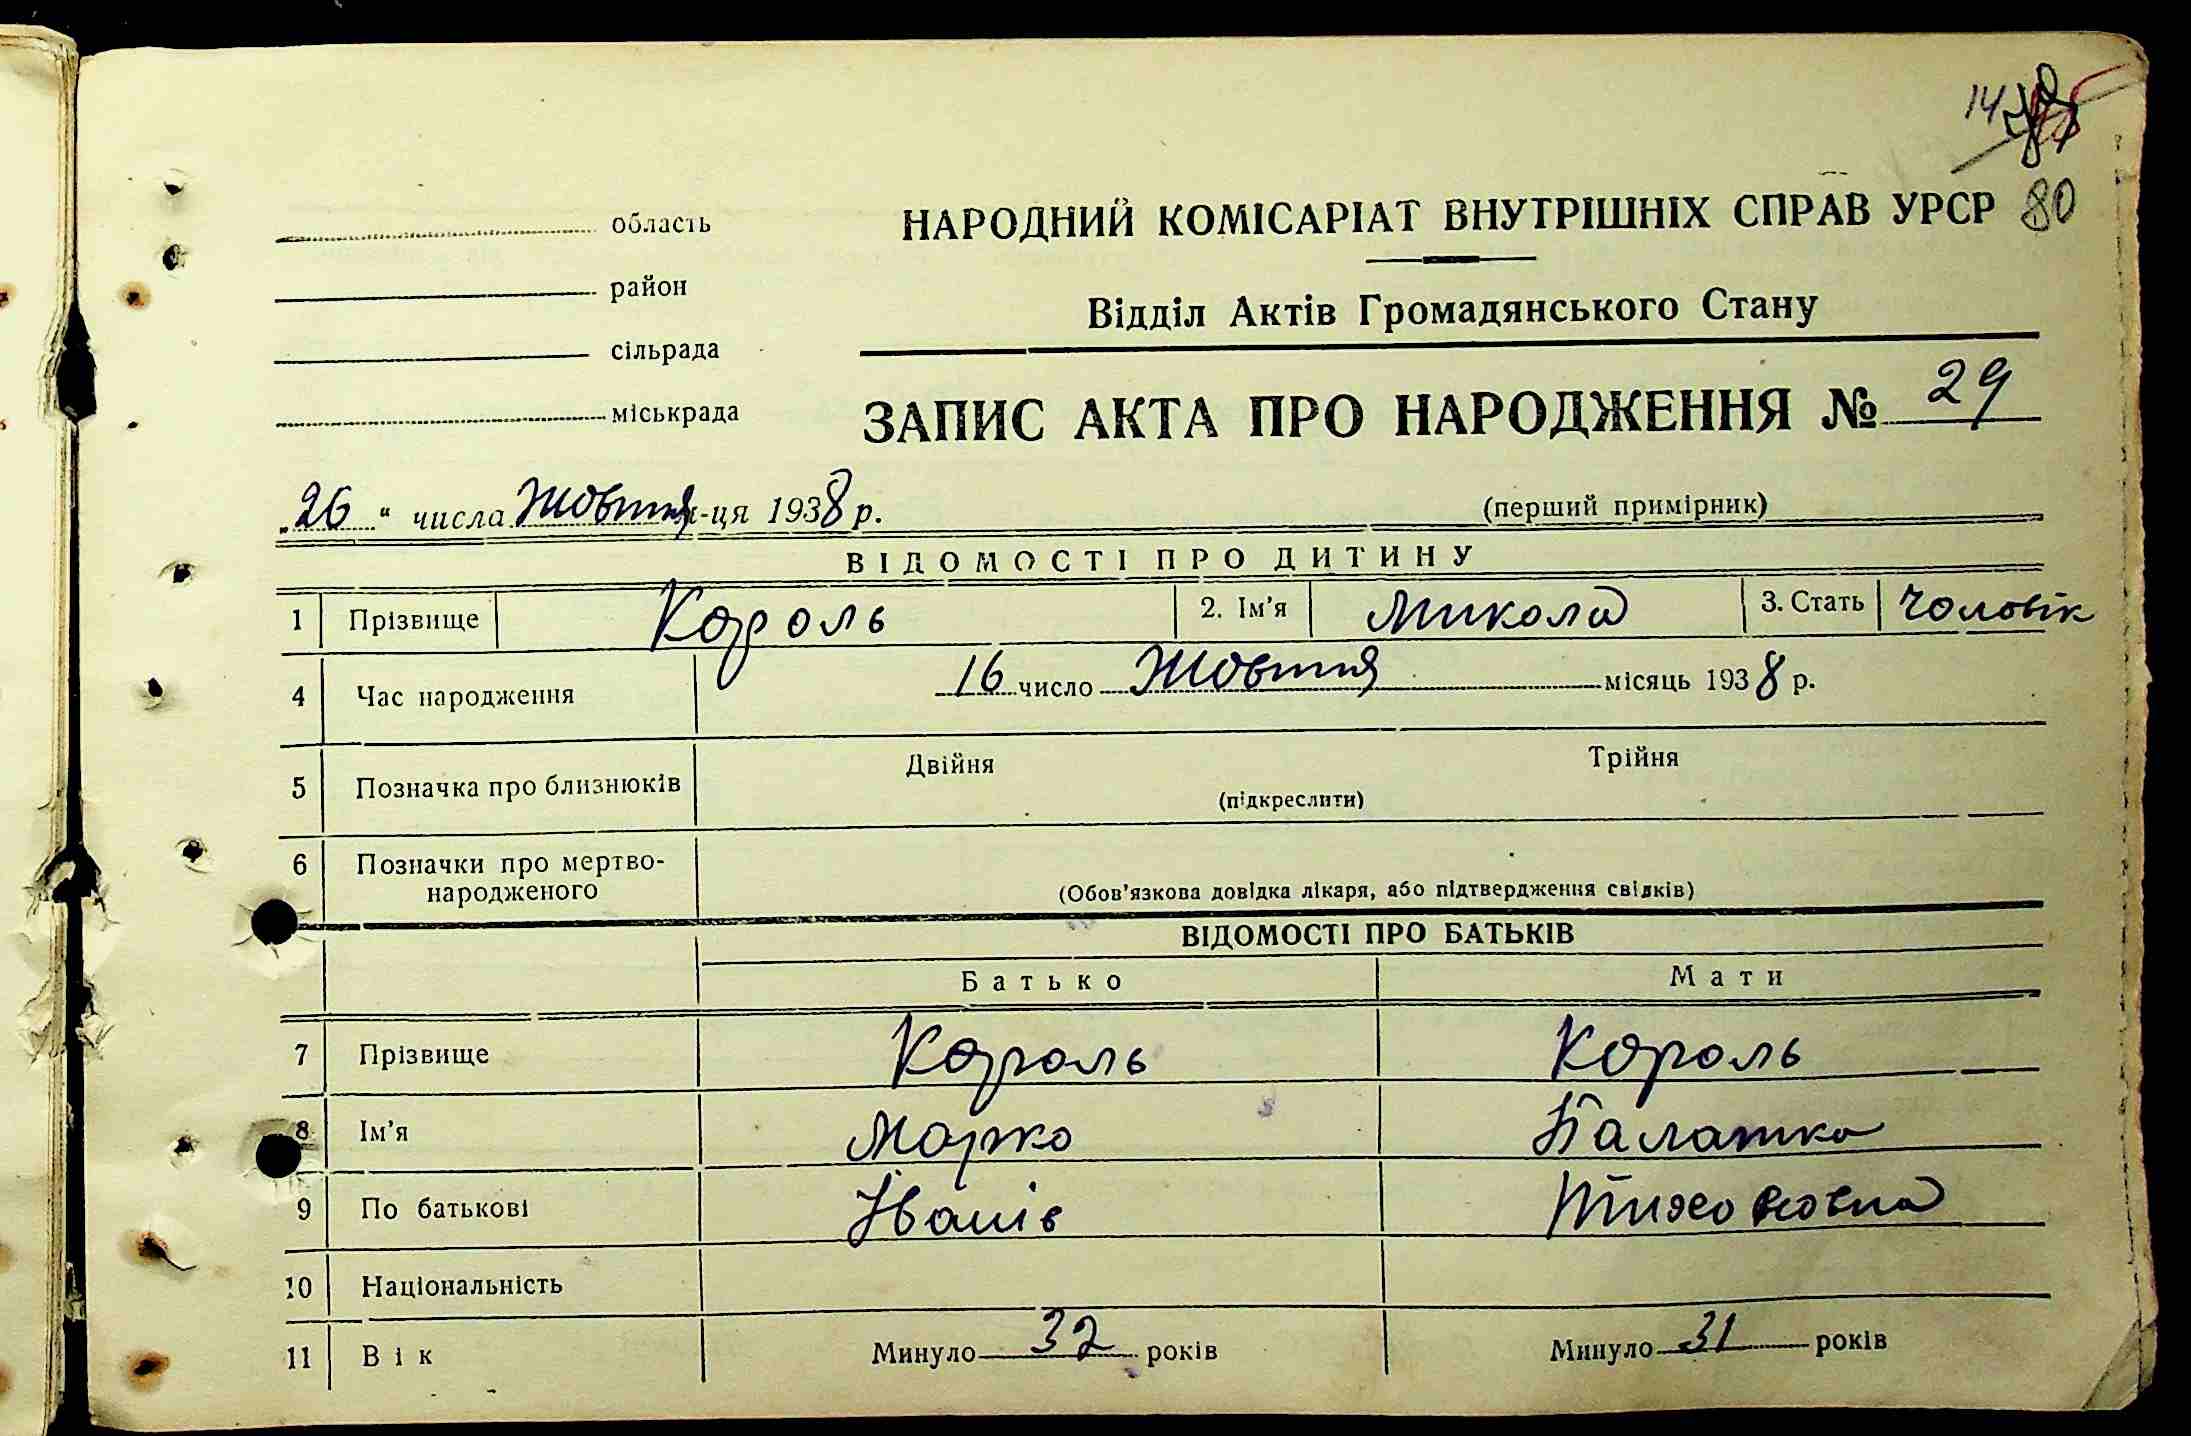 14
80
область
район
сільрада
міськрада
НАРОДНИЙ КОМІСАРІАТ ВНУТРІШНІХ СПРАВ УРСР
Відділ Актів Громадянського Стану
ЗАПИС АКТА ПРО НАРОДЖЕННЯ № 29
„26“ числа Жовтня м-ця 1938 р.
(перший примірник)
ВІДОМОСТІ ПРО ДИТИНУ
1 Прізвище Король 2. Ім'я Микола 3. Стать Чоловік
4 Час народження 16 число Жовтня місяць 1938 р.
5 Позначка про близнюків Двійня Трійня
(підкреслити)
6 Позначки про мертво-
народженого
(Обов'язкова довідка лікаря, або підтвердження свідків)
ВІДОМОСТІ ПРО БАТЬКІВ
Батько Мати
7 Прізвище Король Король
8 Ім'я Марко Палажка
9 По батькові Іванів
10 Національність
11 Вік Минуло 32 років Минуло 31 років